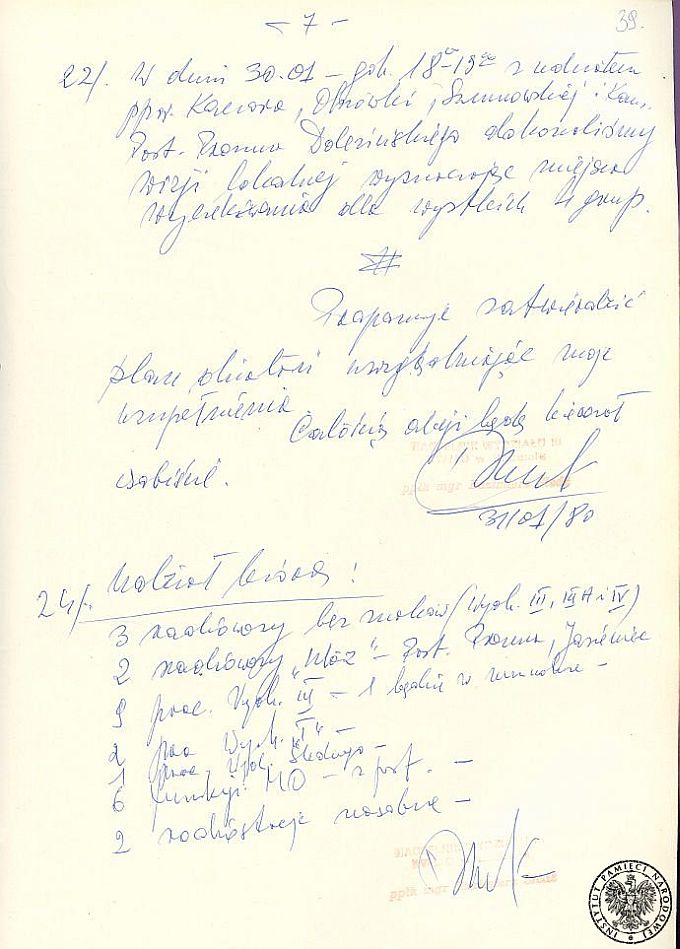 - 7 -
39.
22/. W dniu 30.01 - godz. 18⁰⁰-19⁰⁰ z udziałem
ppor. Kaczora, Olszówki, Szumowskiej i Kom.
Post. Promna Dolezińskiego dokonaliśmy
wizji lokalnej wyznaczając miejsca
wyczekiwania dla wszystkich 4 grup.
Proponuję zatwierdzić
plan działań uwzględniając moje
uzupełnienia
Całością akcji będę kierował
osobiście.
ppłk mgr
31/01/80
24/. Udział biorą:
3 radiowozy bez znaków (Wydz. III, IIIA i IV)
2 radiowozy "Uaz" - Post. Promna, Jasieniec
9 prac. Wydz. III - 1 będzie w mundurze -
2 prac. Wydz. "T" -
1 prac. Wydz. Śledczego -
6 funkcj. MO - z post. -
2 radiostacje nasobne -
ppłk mgr
INSTYTUT PAMIĘCI NARODOWEJ